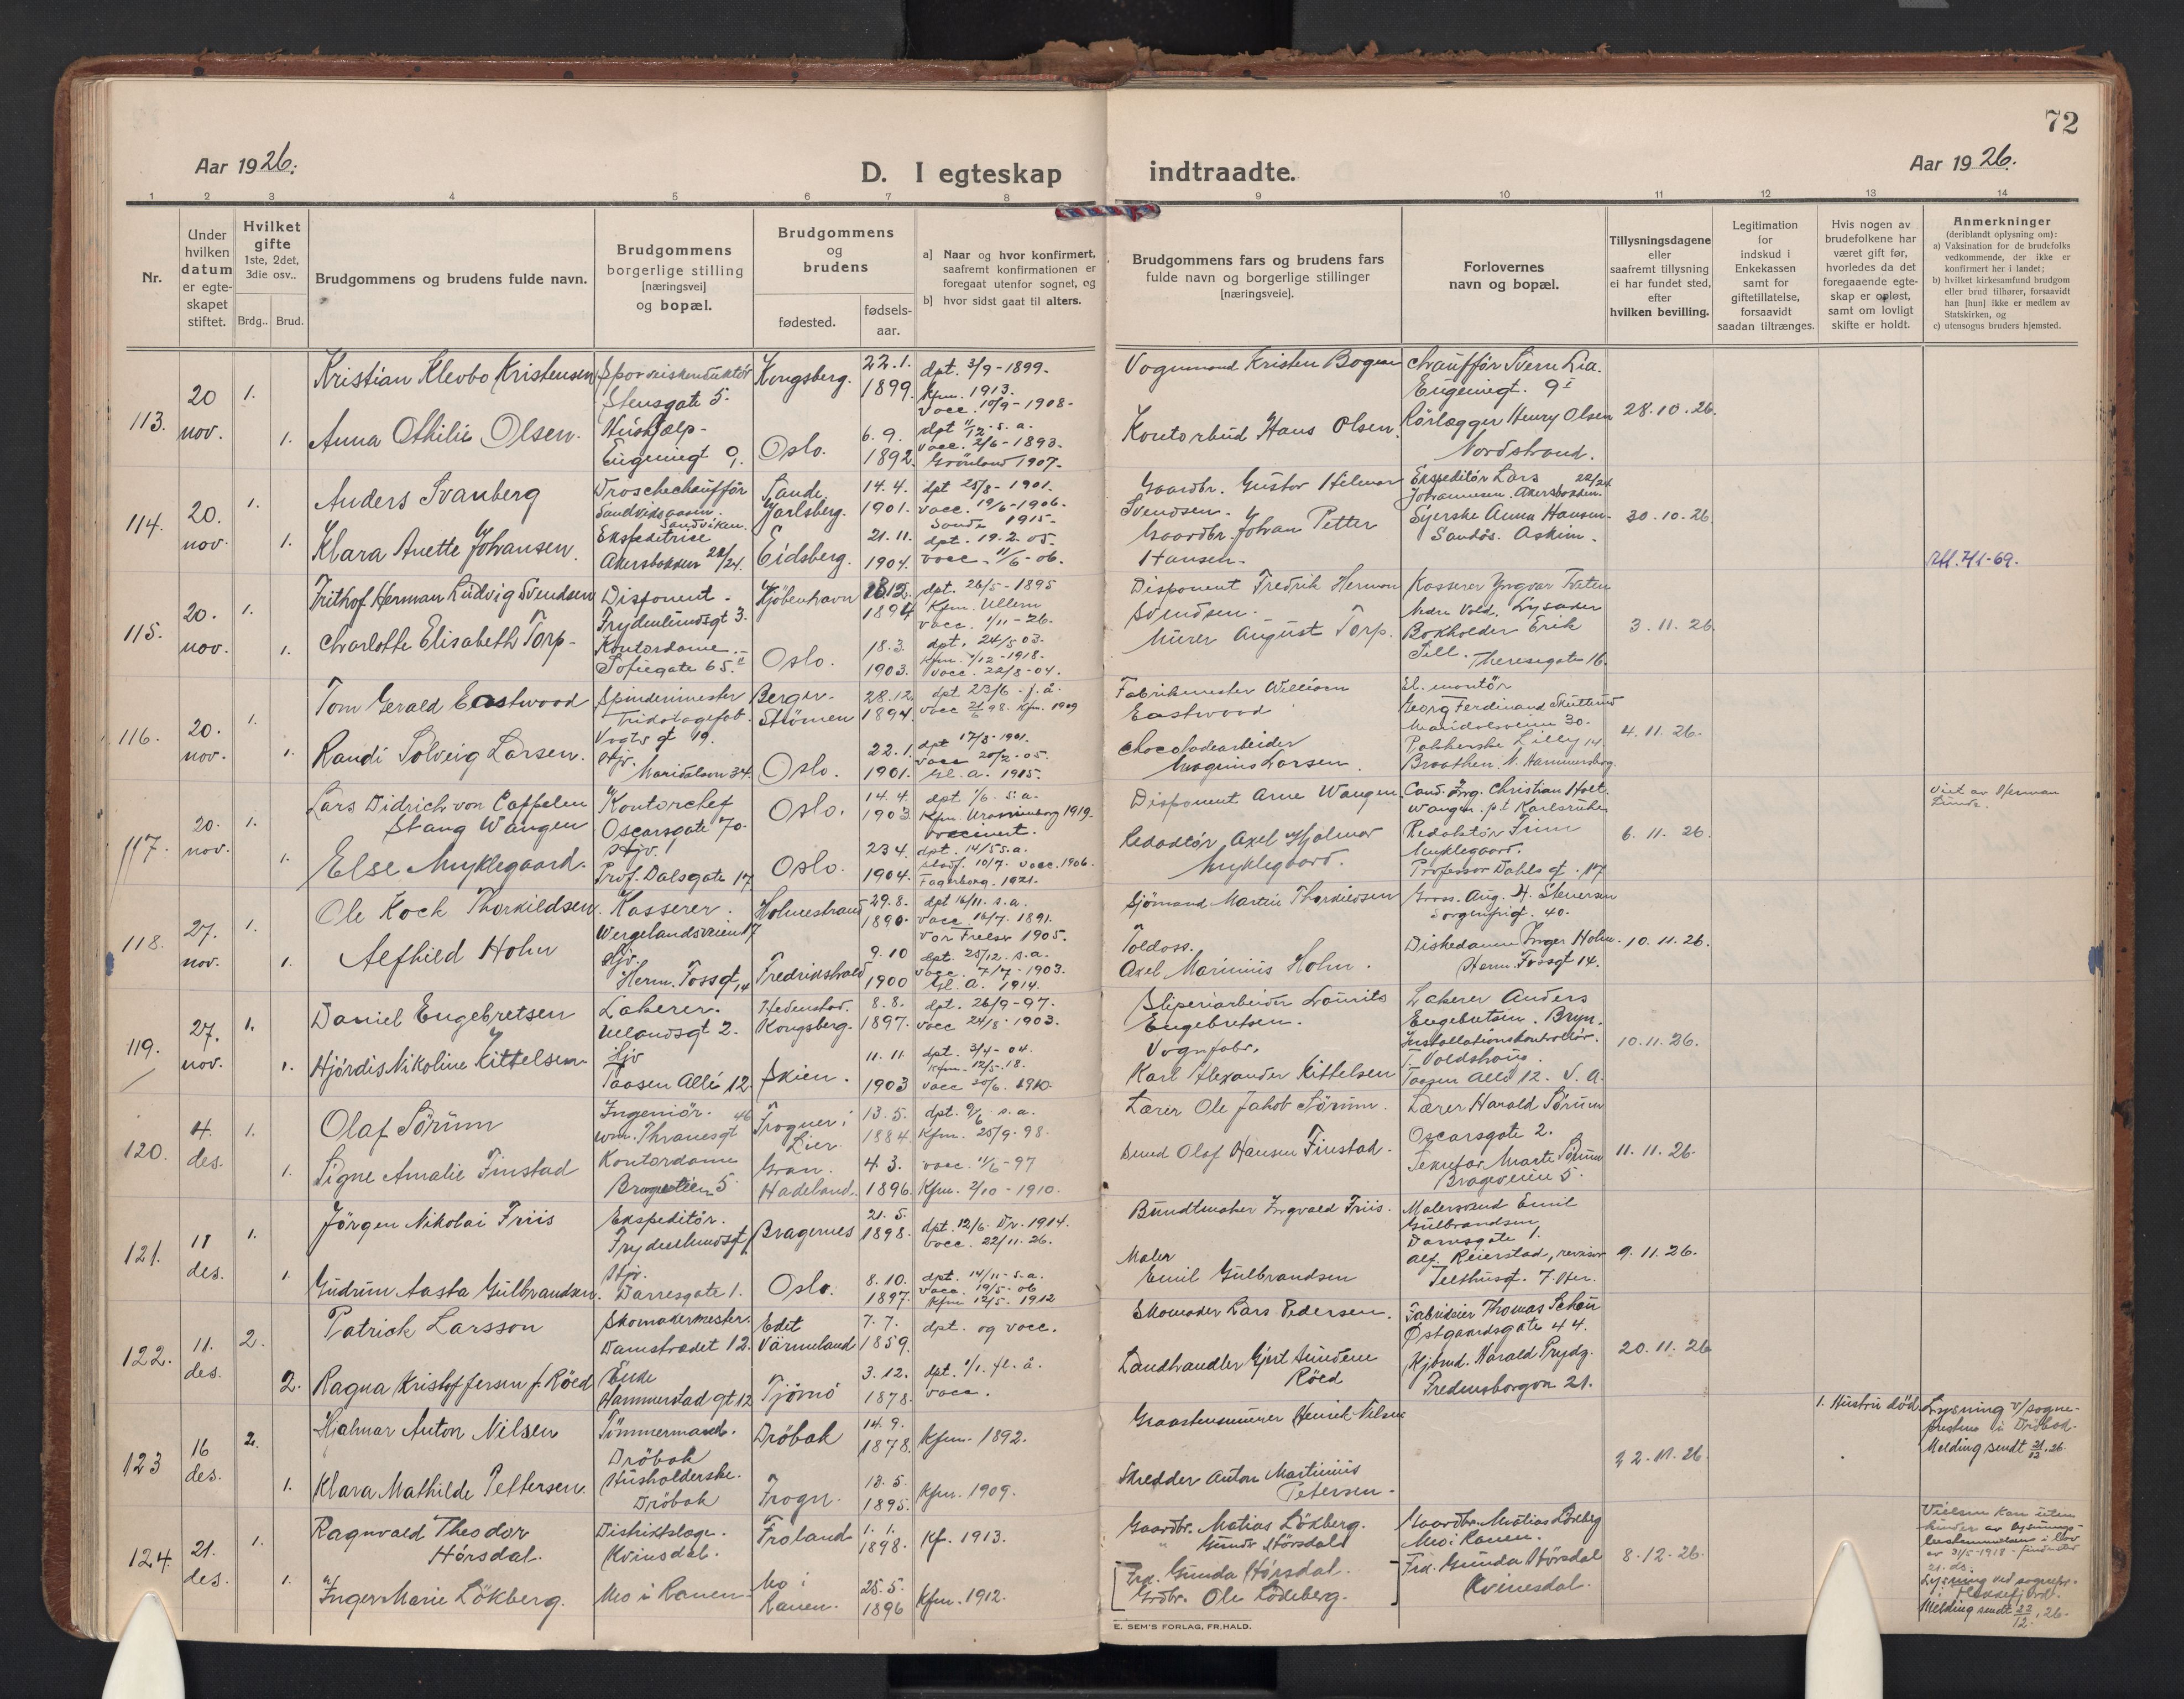 72
Aar 1926.
D. I egteskap indtraadte.
Aar 1926.
1 2 3 4 5 6 7 8 9 10 11 12 13 14
Nr.
Under hvilken datum er egte-skapet stiftet.
Hvilket gifte 1ste, 2det, 3die osv..
Brdg.. Brud.
Brudgommens og brudens fulde navn.
Brudgommens borgerlige stilling [næringsvei] og bopæl.
Brudgommens og brudens
fødested.
fødsels-aar.
a] Naar og hvor konfirmert, saafremt konfirmationen er foregaat utenfor sognet, og
b] hvor sidst gaat til alters.
Brudgommens fars og brudens fars fulde navn og borgerlige stillinger [næringsveie].
Forlovernes navn og bopæl.
Tillysningsdagene eller saafremt tillysning ei har fundet sted, efter hvilken bevilling.
Legitimation for indskud i Enkekassen samt for giftetillatelse, forsaavidt saadan tiltrænges.
Hvis nogen av brudefolkene har været gift før, hvorledes da det foregaaende egte-skap er opløst, samt om lovligt skifte er holdt.
Anmerkninger
(deriblandt oplysning om):
a) Vaksination for de brudefolks vedkommende, der ikke er konfirmert her i landet;
b) hvilket kirkesamfund brudgom eller brud tilhører, forsaavidt han [hun] ikke er medlem av Statskirken, og
c) utensogns bruders hjemsted.
113. 20 nov. 1. 1.
Kristian Klevbo Kristensen
Stensgate 5.
Kongsberg. 22.1. 1899.
dpt. 3/9-1899.
Kfm. 1913.
Vacc. 10/9-1908-
Vognmand Kristen Bogen
Chauffør Sverre Lia.
Eugeniegt. 9 I
Anna Othilie Olsen.
Hushjælp-
Eugeniegt 9.
Oslo. 6.9. 1892.
dpt 11/12. s.a.
vacc. 2/6-1893.
Grønland 1907.
Kontorbud Hans Olsen.
Rørlægger Henry Olsen
Nordstrand.
28.10.26.
114. 20. nov. 1. 1.
Anders Svanberg
Droschechauffør
Sandviken.
Sande Jarlsberg. 14.4. 1901.
dpt 25/8-1901.
vacc. 19/6-1906.
Sande 1915-
Gaardbr. Gustav Helmar
Svendsen.
Ekspeditør Lars
Johannesen. Akersbakken. 22/24
Klara Anette Johansen.
Ekspeditrice
Akersbakken 22/24.
Eidsberg. 21.11. 1904.
dpt. 19.2.05-
vacc. 11/6-06.
Gaardbr. Johan Petter
Hansen.
Syerske Anna Hansen-
Sandös. Askim.
30.10.26.
115. 20. nov. 1. 1.
Frithof Herman Ludvig Svendsen
Disponent.
Frydenlundsgt 3.
Kjöbenhavn 1894
dpt. 26/5-1895
Kfm. Ullern
vacc. 1/11-26.
Disponent Fredrik Herman
Svendsen.
Kasserer Yngvar Tveten
Nedre Vold. Lysaker
Charlotte Elisabeth Torp-
Kontordame.
Sofiegate 65.
Oslo. 18.3. 1903.
dpt. 24/5 03.
Kfm. 1/12-1918.
vacc. 22/8-04.
Murer August Torp.
Bokholder Erik
Sell. Theresegate 16.
3.11.26.
116. 20. nov. 1. 1.
Tom Gerald Eastwood
Spinderimester
Trikotagefab.
Vogts gt 19.
Berger.
Strömen 28.12. 1894.
dpt 23/6. f.å.
vacc 21/6 98. Kfm. 1909
Fabrikmester William
Eastwood
El. montör
Georg Ferdinand Skutterud
Maridalsveien 30.
Randi Solveig Larsen.
Hjv.
Maridalsvn 34.
Oslo. 22.1 1901.
dpt 17/3-1901.
vacc 20/2-05.
Gl. a. 1915.
Chocoladearbeider
Magnus Larsen.
Pakkerske Lilly
Braathen. N. Hammersborg. 14
4.11.26.
117. 20. nov. 1. 1.
Lars Didrich von Cappelen
Stang Wangen
Kontorchef
Oscarsgate 70.
Oslo. 14.4. 1903
dpt 1/6. s.a.
Kfm. Uranienborg 1919.
vaccinert.
Disponent Arne Wangen
Cand. Ing. Christian Holt.
Wangen. p.t Karlsruhe
Else Myklegaard.
Hjv.
Prof. Dalsgate 17
Oslo. 23 4. 1904.
dpt. 14/5 s.a.
vacc. 1906.
Fagerborg-1921.
Redaktør Axel Hjalmar
Myklegaard.
Redaktør Finn
Myklegaard.
Professor Dahls gt. 17
6.11.26.
Viet av Herman
Lunde.
118. 27. nov. 1. 1.
Ole Koch Thorkildsen.
Kasserer.
Wergelandsveien 17
Holmestrand 29.8. 1890.
dpt 16/11. s.a.
vacc 16/7. 1891.
Vor Frelser 1905.
Sjømand Martin Thorkildsen
Gross. Aug. H. Stenersen
Sorgenfrigt. 40.
Alfhild Holm
Hjv.
Herm. Fossgt. 14
Fredrikshald 9.10 1900
dpt. 25/12. s.a.
vacc. 7/7-1903.
Gl. A. 1914.
Toldass.
Axel Marinius Holm.
Diskedame Inger Holm.
Herm. Fossgt 14.
10.11.26.
119. 27. nov. 1. 1.
Daniel Engebretsen
Lakerer.
Uelandsgt 2.
Hedenstad.
Kongsberg. 8.8. 1897.
dpt. 26/9-97.
vacc 24/8-1903.
Sliperiarbeider Laurits
Engebretsen.
Lakerer Anders
Engebretsen. Bryn.
Hjördis Nikoline Kittelsen
Hjv
Taasen Allé 12.
Skien. 11.11. 1903
dpt. 3/4-04.
Kfm. 12/5-18.
vacc 20/6. 1910.
Vognfabr.
Karl Alexander Kittelsen
Installationskontrollör.
T. Voldshaug.
Taasen Allé 12. V.A.
10.11.26.
120. 4. des. 1. 1.
Olaf Sörum
Ingeniör.
Wm. Thranesgt 46
Frogner i
Lier 13.5. 1884.
dpt. 9/6. s.a.
Kfm. 25/9-98.
Lærer Ole Jakob Sörum.
Lærer Harald Sörum
Oscarsgate 2.
Signe Amalie Finstad
Kontordame
Brageveien 5
Gran.
Hadeland. 4.3. 1896.
vacc. 11/6-97
Kfm. 2/10-1910.
Smed Olaf Hansen Finstad.
Marte Sörum
Brageveien 5.
11.11.26.
121. 11 des. 1. 1.
Jörgen Nikolai Friis
Ekspeditör.
Frydenlundsgt.
Bragernes 21.5. 1898.
dpt. 12/6. Dr. 1914.
vacc. 22/11.26.
Bundtmaker Ingvald Friis.
Malersvend Emil
Gulbrandsen,
Darresgate 1.
Gudrun Aasta Gulbrandsen.
Hjv.
Darresgate 1.
Oslo. 8.10. 1897.
dpt. 14/11-s.a.
vacc. 19/5-06
Kfm 12/5-1912
Maler
Emil Gulbrandsen
Alf. Reierstad, revisor
9.11.26.
122. 11. des. 2. 2.
Patrick Larsson
Skomakermester.
Damstrædet 12.
Edet
Värmland 7.7. 1859.
dpt. og vacc.
Skomaker Lars Pedersen.
Fabrikeier Thomas Schau
Östgaardsgate 44.
Ragna Kristoffersen f. Röed
Enke
Hammerstad gt 12
Tjömö 3.12. 1878.
dpt. 1/1. fl. å.
vacc.
Landhandler Gjert Sundene
Röed
Kjbmd. Harald Prydz.
Fredensborgvn 21.
20.11.26
123 16 des. 2. 1.
Hjalmar Anton Nilsen
Tömmermand.
Dröbak
Dröbak 14.9. 1878.
Kfm. 1892.
Graastensminerer Henrik Nilsen
1. Hustru död.
Lysning v/ sogne-
presten i Dröbak.
Melding sendt 21/12.26.
Klara Mathilde Pettersen.
Husholderske.
Dröbak
Frogn. 13.5. 1895.
Kfm. 1909.
Skredder Anton Martinius
Petersen-
22.11.26.
124. 21. des. 1. 1.
Ragnvald Theodor
Hörsdal.
Distriktslæge.
Kvinesdal.
Froland 1.1. 1898.
Kf. 1913.
Gaardbr. Matias Lökberg.
" Gunder Hörsdal
Gaardbr. Matias Lökberg
Mo i Ranen.
Inger Marie Lökberg.
Mo i Ranen-
Mo i
Ranen. 25.5. 1896
Kfm. 1912.
Frk. Gunda Hörsdal.
Grdbr. Ole Lökberg.
Frk. Gunda Hörsdal
Kvinesdal.
8.12.26.
Vielsen kan uten
hinder av lysnings-
bestemmelsen i lov
av 31/5-1918-finde sted
21. ds.
Lysning ved sognepr.
Melding sendt 22/12.26-
E. SEM'S FORLAG, FR.HALD.